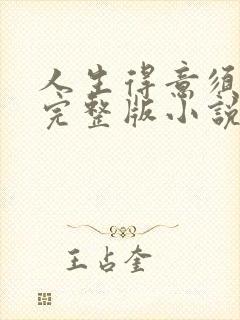 人生得意须
完整版小說
王占奎